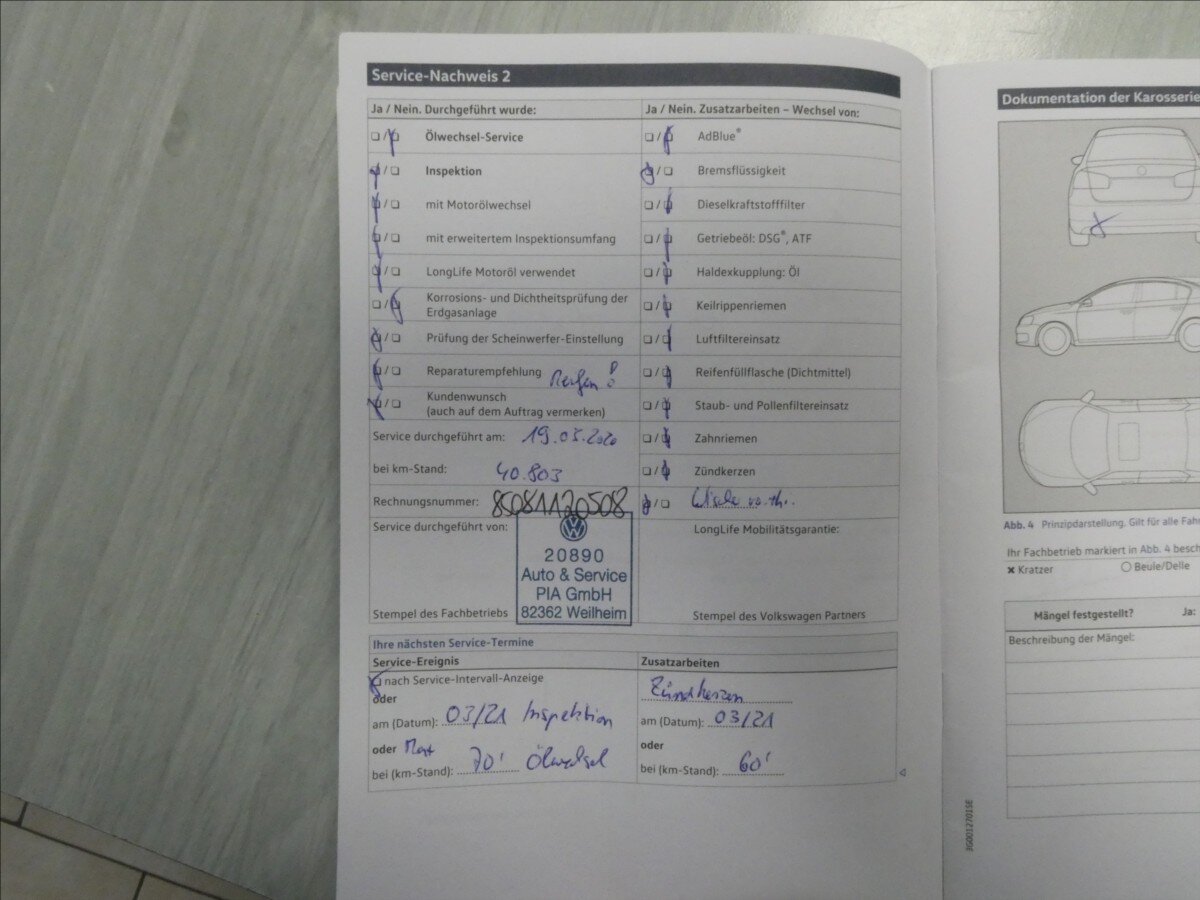 Service-Nachweis 2
Ja / Nein. Durchgeführt wurde:
Ölwechsel-Service
Inspektion
mit Motorölwechsel
mit erweitertem Inspektionsumfang
LongLife Motoröl verwendet
Korrosions- und Dichtheitsprüfung der
Erdgasanlage
Prüfung der Scheinwerfer-Einstellung
Reparaturempfehlung Reifen!
Kundenwunsch
(auch auf dem Auftrag vermerken)
Service durchgeführt am: 19.05.2020
bei km-Stand: 40.803
Rechnungsnummer: 85081120508
Service durchgeführt von:
20890
Auto & Service
PIA GmbH
82362 Weilheim
Stempel des Fachbetriebs
Ja / Nein. Zusatzarbeiten – Wechsel von:
AdBlue®
Bremsflüssigkeit
Dieselkraftstofffilter
Getriebeöl: DSG®, ATF
Haldexkupplung: Öl
Keilrippenriemen
Luftfiltereinsatz
Reifenfüllflasche (Dichtmittel)
Staub- und Pollenfiltereinsatz
Zahnriemen
Zündkerzen
LongLife Mobilitätsgarantie:
Stempel des Volkswagen Partners
Ihre nächsten Service-Termine
Service-Ereignis
nach Service-Intervall-Anzeige
oder
am (Datum): 03/21 Inspektion
oder Max
bei (km-Stand): 70' Ölwechsel
Zusatzarbeiten
Zündkerzen
am (Datum): 03/21
oder
bei (km-Stand): 60'
Dokumentation der Karosserie
Abb. 4 Prinzipdarstellung. Gilt für alle Fahr
Ihr Fachbetrieb markiert in Abb. 4 besch
✖ Kratzer
○ Beule/Delle
Mängel festgestellt? Ja:
Beschreibung der Mängel:
3G0012701SE